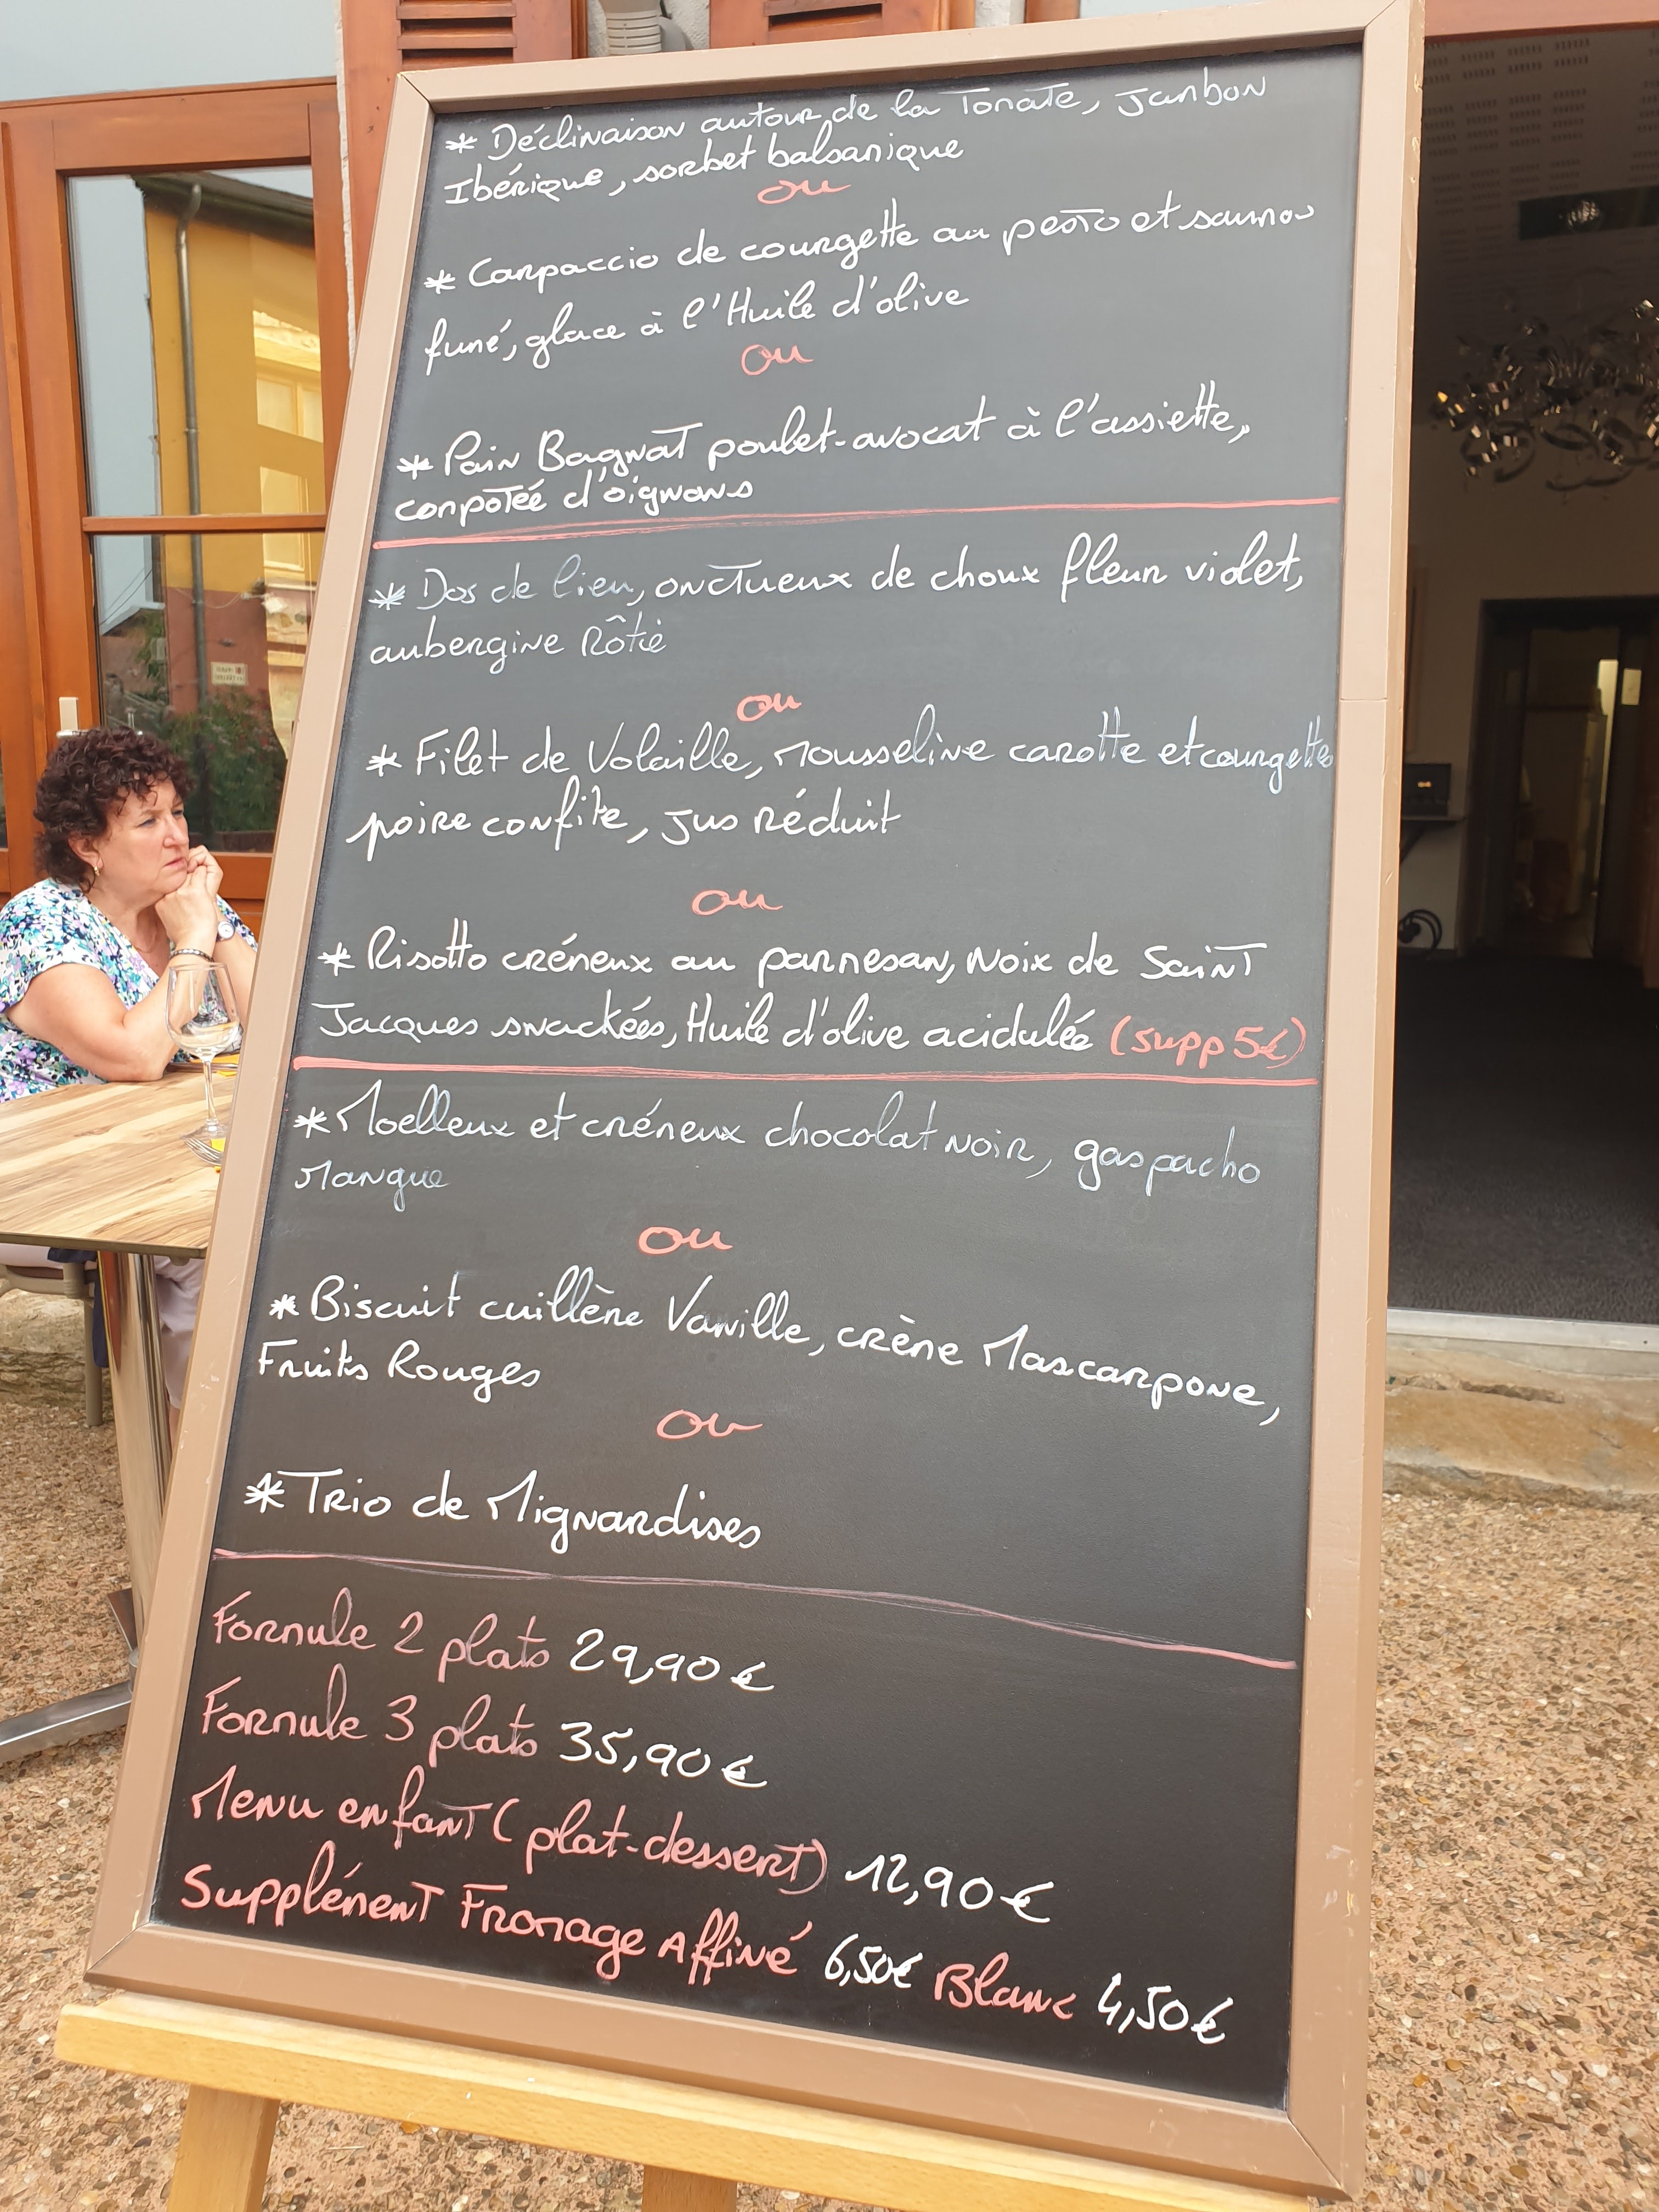 * Déclinaison autour de la Tomate, jambon
Ibérique, sorbet balsamique
ou
* Carpaccio de courgette au pesto et saumon
fumé, glace à l'Huile d'olive
ou
* Pain Bagnat poulet-avocat à l'assiette,
compotée d'oignons
* Dos de lieu, onctueux de choux fleur violet,
aubergine Rôtie
ou
* Filet de Volaille, Mousseline carotte et courgette
poire confite, jus réduit
ou
* Risotto crémeux au parmesan, Noix de Saint
Jacques snackées, Huile d'olive acidulée (supp 5€)
* Moelleux et crémeux chocolat noir, gaspacho
Mangue
ou
* Biscuit cuillère Vanille, crème Mascarpone,
Fruits Rouges
ou
* Trio de Mignardises
Formule 2 plats 29,90 €
Formule 3 plats 35,90 €
Menu enfant (plat-dessert) 12,90 €
Supplément Fromage Affiné 6,50€ Blanc 4,50€